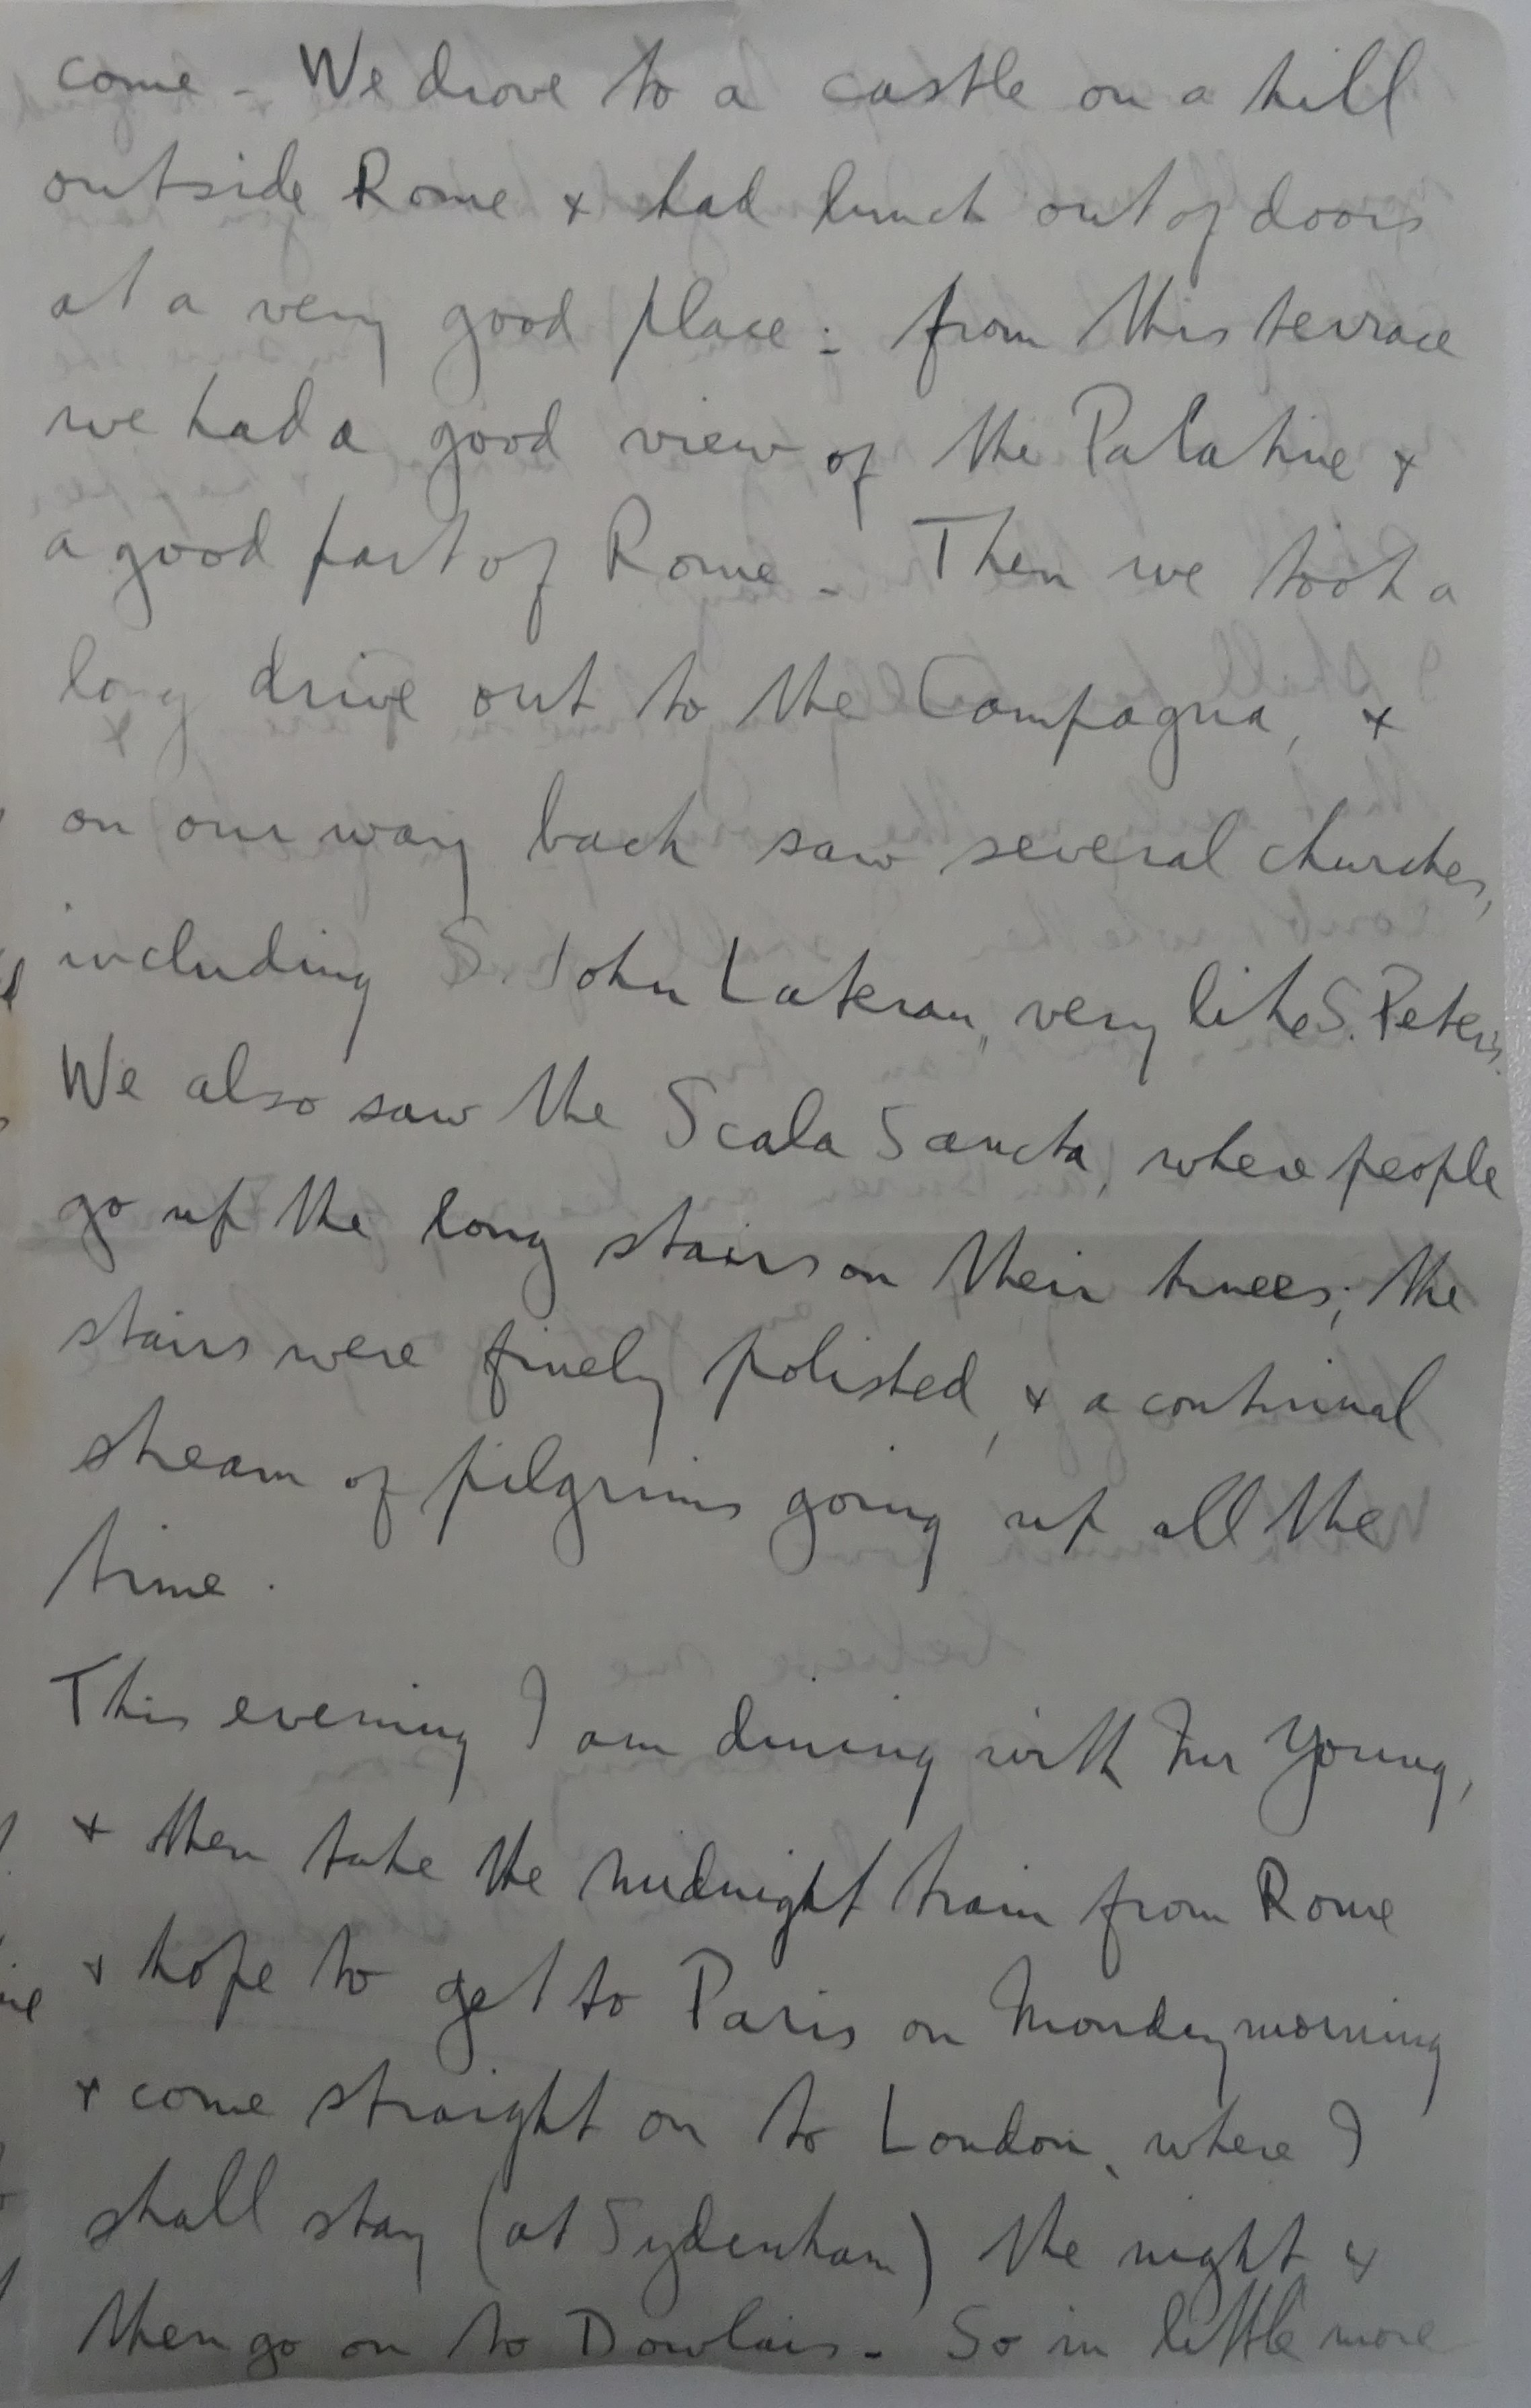 come - We drove to a castle on a hill
outside Rome & had lunch out of doors
at a very good place : from this terrace
we had a good view of the Palatine &
a good part of Rome - Then we took a
long drive out to the Campagna, &
on our way back saw several churches,
including S. John Lateran, very like S. Peter's.
We also saw the Scala Sancta, where people
go up the long stairs on their knees; the
stairs were finely polished, & a continual
stream of pilgrims going up all the
time.
This evening I am dining with Mr Young,
& then take the midnight train from Rome
& hope to get to Paris on Monday morning
& come straight on to London, where I
shall stay (at Sydenham) the night &
then go on to Dowlais - So in little more